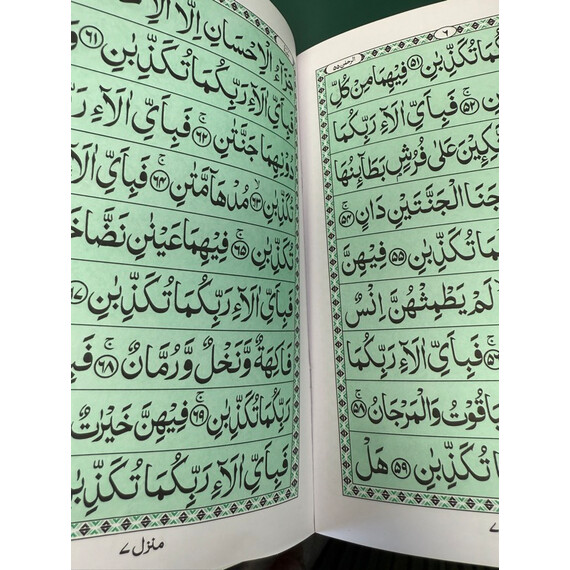 ٦ الرحمٰن ٥٥
كُمَا تُكَذِّبٰنِ ﴿٥١﴾ فِيْهِمَا مِنْ كُلِّ
نِ ﴿٥٢﴾ فَبِاَيِّ اٰلَآءِ رَبِّكُمَا
تَّكِـِٕيْنَ عَلٰى فُرُشٍۭ بَطَآىِٕنُهَا
جَنَا الْجَنَّتَيْنِ دَانٍ ﴿٥٤﴾
مَا تُكَذِّبٰنِ ﴿٥٥﴾ فِيْهِنَّ
لَمْ يَطْمِثْهُنَّ اِنْسٌ
﴿٥٦﴾ فَبِاَيِّ اٰلَآءِ رَبِّكُمَا
يَاقُوْتُ وَالْمَرْجَانُ ﴿٥٨﴾
مَا تُكَذِّبٰنِ ﴿٥٩﴾ هَلْ
٧
جَزَآءُ الْاِحْسَانِ اِلَّا الْاِ
فَبِاَيِّ اٰلَآءِ رَبِّكُمَا تُكَذِّبٰنِ ﴿٦١﴾
دُوْنِهِمَا جَنَّتٰنِ ﴿٦٢﴾ فَبِاَيِّ اٰلَآءِ رَبِّ
تُكَذِّبٰنِ ﴿٦٣﴾ مُدْهَآمَّتٰنِ ﴿٦٤﴾ فَبِاَيِّ اٰلَا
تُكَذِّبٰنِ ﴿٦٥﴾ فِيْهِمَا عَيْنٰنِ نَضَّاخَ
فَبِاَيِّ اٰلَآءِ رَبِّكُمَا تُكَذِّبٰنِ ﴿٦٧﴾
فَاكِهَةٌ وَّنَخْلٌ وَّرُمَّانٌ ﴿٦٨﴾ فَبِ
رَبِّكُمَا تُكَذِّبٰنِ ﴿٦٩﴾ فِيْهِنَّ خَيْرٰتٌ
فَبِاَيِّ اٰلَآءِ رَبِّكُمَا تُكَذِّبٰنِ
منزل ٧